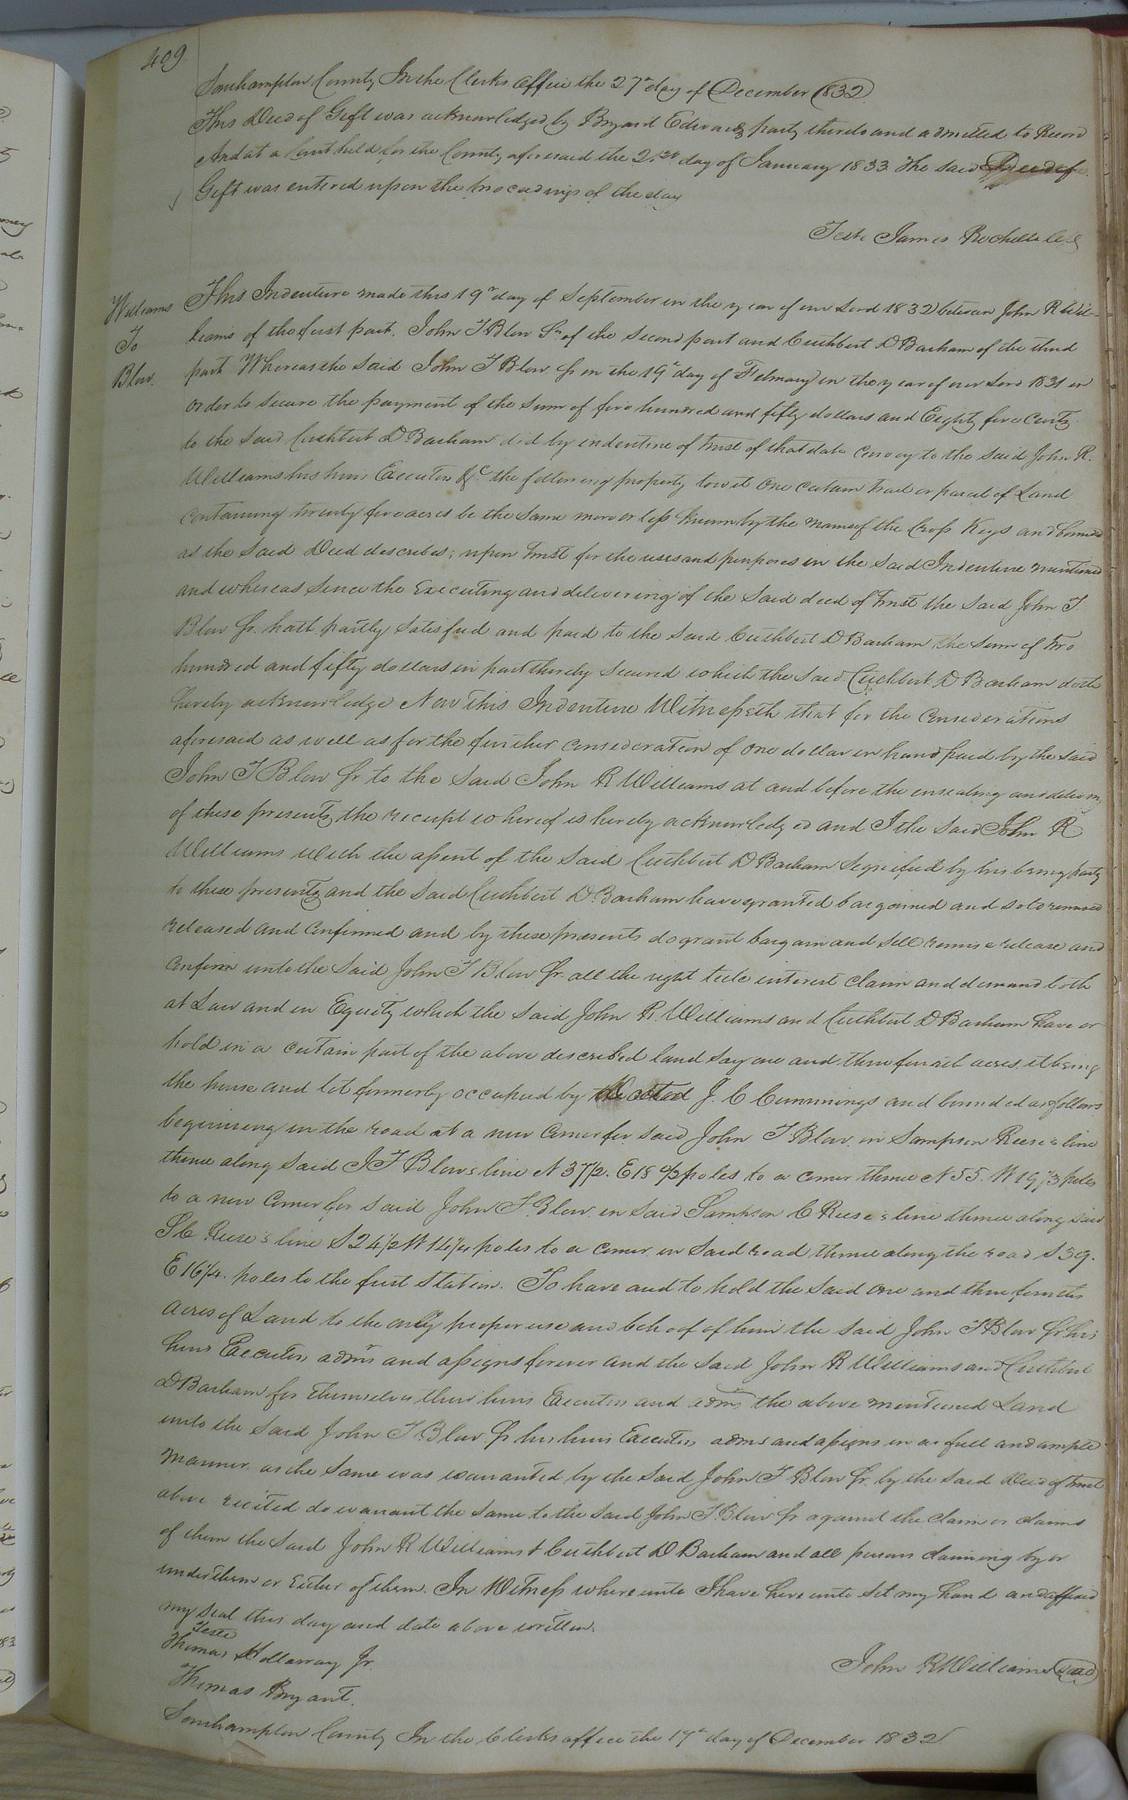 409
Southampton County In the Clerks office the 27th day of December 1832
This Deed of Gift was acknowledged by Bryant Edwards party thereto and admitted to Record
And at a Court held for the County aforesaid the 21st day of January 1833 The said Deed of
Gift was entered upon the proceedings of the day
Teste James Rochelle
Williams
To
Blow.
This Indenture made this 19th day of September in the year of our Lord 1832 between John R Wil-
liams of the first part. John T Blow Sr of the Second part and Cuthbert D Barham of the third
part Whereas the Said John T Blow Sr on the 19th day of February in the year of our Lord 1831 in
order to secure the payment of the sum of five hundred and fifty dollars and Eighty five cents
to the said Cuthbert D Barham did by indenture of trust of that date Convey to the said John R.
Williams his heirs Executors &c the following property towit One certain tract or parcel of Land
Containing twenty five acres be the same more or less known by the name of the Cross Keys and bounded
as the said Deed describes; upon trust for the uses and purposes in the said Indenture mentioned
and whereas Since the Executing and delivering of the said deed of trust the said John T
Blow Sr. hath partly satisfied and paid to the said Cuthbert D Barham the sum of two
hundred and fifty dollars in part thereby Secured which the said Cuthbert D Barham doth
hereby acknowledge Now This Indenture Witnesseth that for the considerations
aforesaid as well as for the further consideration of one dollar in hand paid by the said
John T Blow Sr. to the said John R Williams at and before the ensealing and delivery
of these presents, the receipt whereof is hereby acknowledged and I the said John R
Williams with the assent of the said Cuthbert D Barham Signified by his being party
to these presents and the said Cuthbert D. Barham have granted bargained and sold remised
released and Confirmed and by these presents do grant bargain and sell remise release and
Confirm unto the said John T Blow Sr. all the right title interest claim and demand both
at Law and in Equity which the said John R. Williams and Cuthbert D Barham have or
hold in a certain part of the above described land say one and three fourth acres, it being
the house and lot formerly occupied by J. C Cummings and bounded as follows
beginning in the road at a new Corner for said John T Blow. in Sampson Reese's line
thence along said J T Blow's line N 37½. E 18 poles to a corner thence N 55. W 19 poles
to a new corner for said John T. Blow. in said Sampson C Reese's line thence along said
S C Reese's line S 24½ W 14¼ poles to a corner in said road thence along the road S 39.
E 16¼. poles to the first Station. To have and to hold the said One and three fourths
Acres of Land to the only proper use and behoof of him the said John T Blow Sr his
heirs Executors admrs and assigns forever and the said John R Williams and Cuthbert
D Barham for themselves their heirs Executors and admrs the above mentioned Land
unto the said John T. Blow Sr his heirs Executors admrs and assigns in as full and ample
manner as the same was warranted by the said John T Blow Sr. by the said Deed of trust
above recited do warrant the same to the said John T. Blow Sr against the claim or claims
of them the said John R Williams & Cuthbert D Barham and all persons claiming by or
under them or Either of them. In Witness whereunto I have hereunto set my hand and affixed
my seal this day and date above written.
Teste
Thomas Holloway Jr.
John R Williams Seal
Thomas Bryant.
Southampton County In the Clerks office the 17th day of December 1832